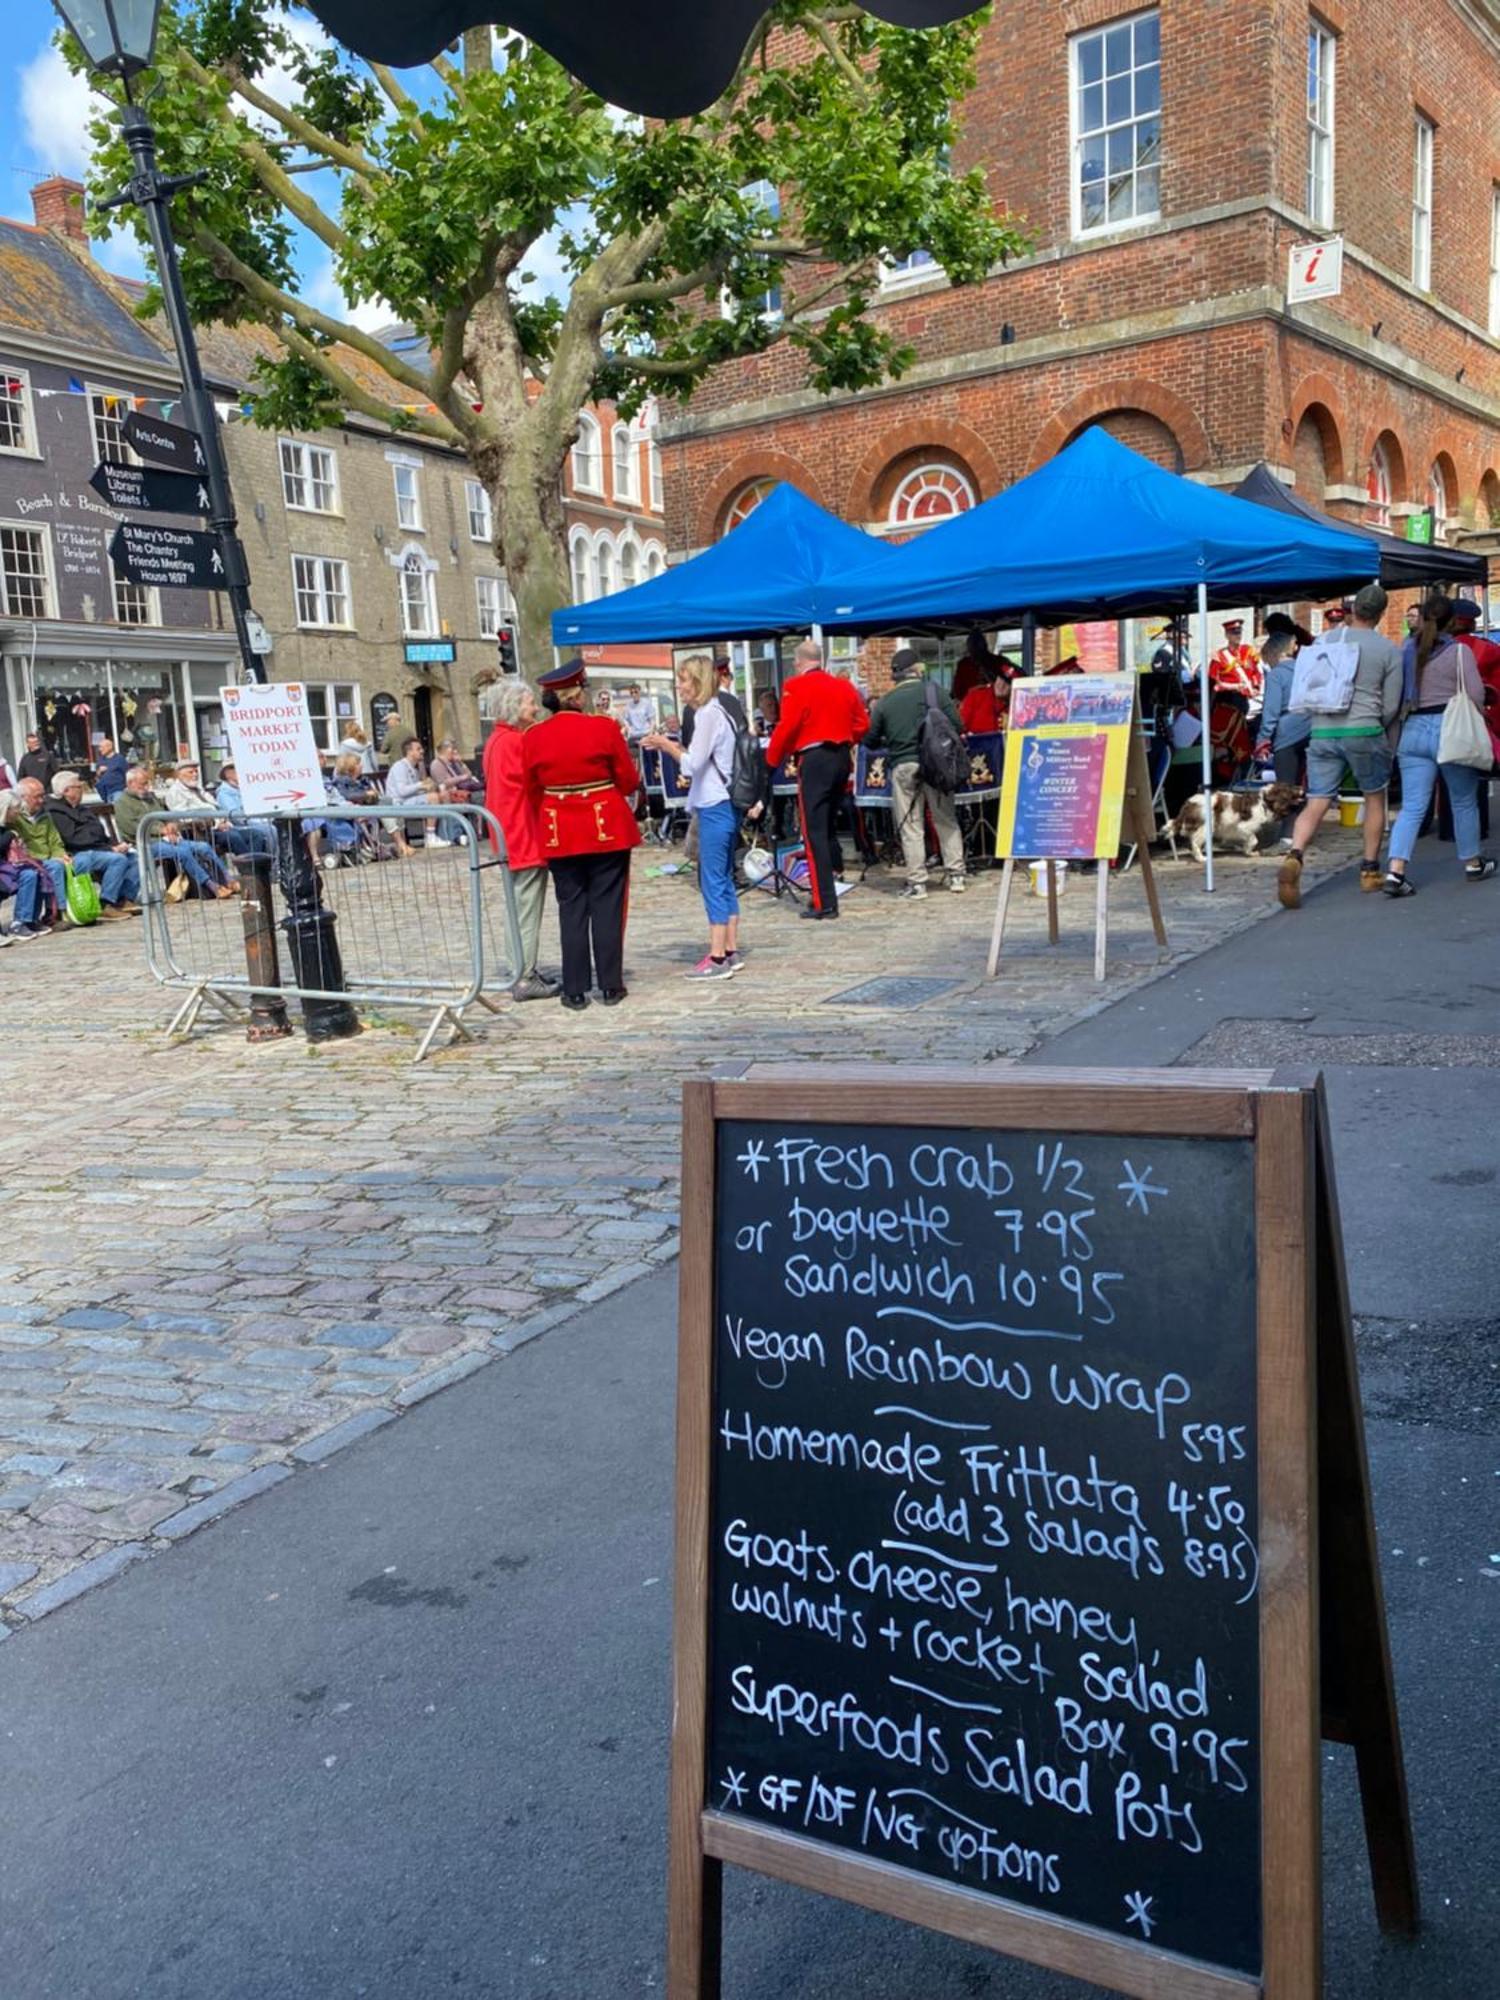 Arts Centre
Museum
Library
Toilets
St Mary's Church
The Chantry
Friends Meeting
House 1697
Beach & Barnicott
Dr Roberts
Bridport
GEORGE
HOTEL
BRIDPORT
MARKET
TODAY
@
DOWNE ST
i
i
The
Wessex
Military Band
and Friends
WINTER
CONCERT
*Fresh Crab 1/2 *
or baguette 7.95
Sandwich 10.95
Vegan Rainbow wrap
5.95
Homemade Frittata 4.50
(add 3 salads 8.95)
Goats.cheese, honey,
walnuts + rocket salad.
Box 9.95
Superfoods Salad Pots
* GF/DF/VG options
*